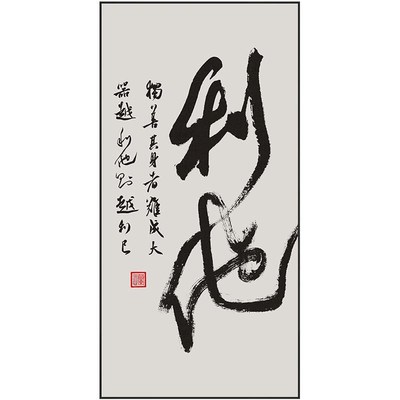 利他
獨善其身者難成大
器越利他則越利己